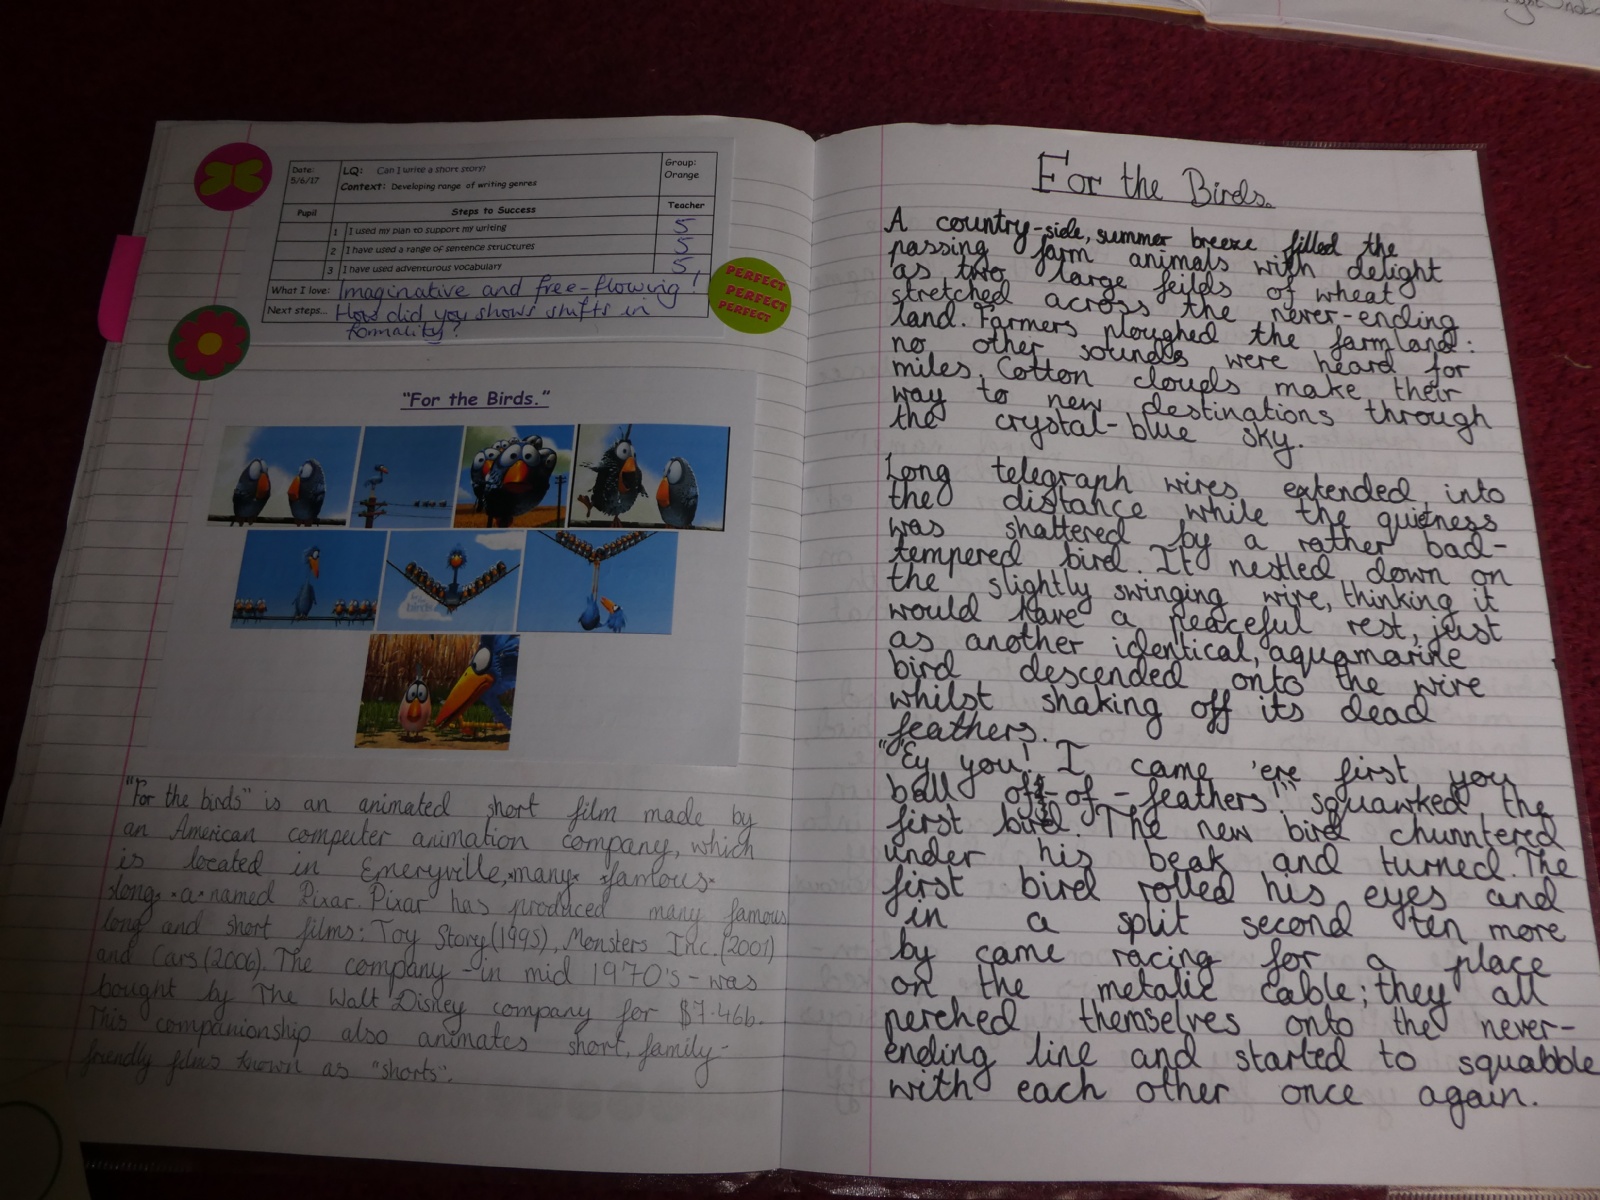 Date:
5/6/17
LQ: Can I write a short story?
Context: Developing range of writing genres
Group:
Orange
Pupil
Steps to Success
Teacher
1 I used my plan to support my writing 5
2 I have used a range of sentence structures 5
3 I have used adventurous vocabulary 5
What I love: Imaginative and free-flowing!
Next steps... How did you shows shifts in
formality?
PERFECT
PERFECT
PERFECT
"For the Birds."
"For the birds" is an animated short film made by
an American computer animation company, which
is located in Emeryville, many famous
long a named Pixar. Pixar has produced many famous
long and short films: Toy Story (1995), Monsters Inc. (2001)
and Cars (2006). The company - in mid 1970's - was
bought by The Walt Disney company for $7.46b.
This companionship also animates short, family-
friendly films known as "shorts".
For the Birds.
A country-side, summer breeze filled the
passing farm animals with delight
as two large feilds of wheat
stretched across the never-ending
land. Farmers ploughed the farmland:
no other sounds were heard for
miles. Cotton clouds make their
way to new destinations through
the crystal-blue sky.
Long telegraph wires extended into
the distance while the quietness
was shattered by a rather bad-
tempered bird. It nestled down on
the slightly swinging wire, thinking it
would have a peaceful rest, just
as another identical, aquamarine
bird descended onto the wire
whilst shaking off its dead
feathers.
"Ey you! I came 'ere first you
ball off-of-feathers!" squawked the
first bird. The new bird chunntered
under his beak and turned. The
first bird rolled his eyes and
in a split second ten more
by came racing for a place
on the metalic cable; they all
perched themselves onto the never-
ending line and started to squabble
with each other once again.